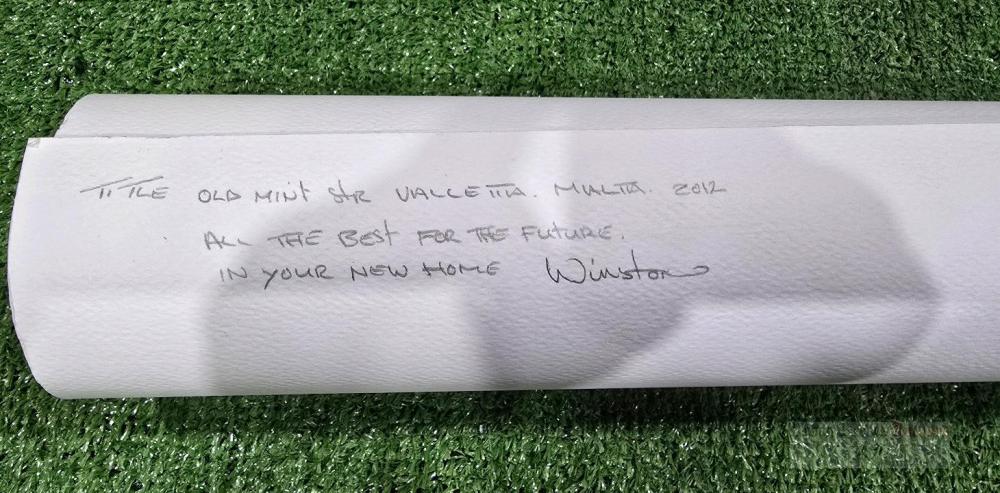 TITLE OLD MINT STR VALLETTA. MALTA. 2012
ALL THE BEST FOR THE FUTURE.
IN YOUR NEW HOME Winston